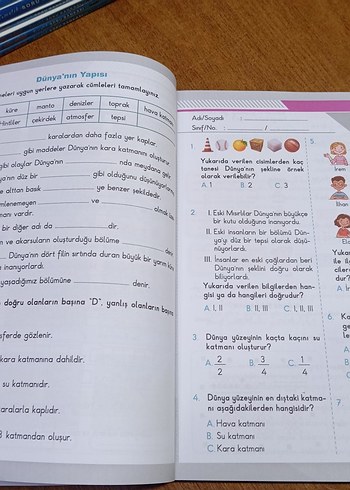 Dünya'nın Yapısı
eleri uygun yerlere yazarak cümleleri tamamlayınız.
küre manto denizler toprak hava katmanı
Hintliler çekirdek atmosfer tepsi
karalardan daha fazla yer kaplar.
gibi maddeler Dünya'nın kara katmanını oluşturur.
gibi olaylar Dünya'nın nda meydana gelir.
ya'nın düz bir gibi olduğunu düşünüyorlarmış.
e alttan basık ye benzer şekildedir.
mlenemeyen ve olmak üze
manı vardır.
n bir diğer adı da dir.
n ve akarsuların oluşturduğu bölüme deni
Dünya'nın dört filin sırtında duran büyük bir yarım küre
e inanıyorlardı.
yaşadığımız bölümüne denir.
doğru olanların başına "D", yanlış olanların başına
sferde gözlenir.
kara katmanına dahildir.
su katmanıdır.
aralarla kaplıdır.
3 katmandan oluşur.
Adı/Soyadı :
Sınıf/No. : /
1.
Yukarıda verilen cisimlerden kaç
tanesi Dünya'nın şekline örnek
olarak verilebilir?
A. 1 B. 2 C. 3
2. I. Eski Mısırlılar Dünya'nın büyükçe
bir kutu olduğuna inanıyordu.
II. Eski insanların bir bölümü Dün-
ya'yı düz bir tepsi olarak düşü-
nüyorlardı.
III. İnsanlar en eski çağlardan beri
Dünya'nın şeklini doğru olarak
biliyorlardı.
Yukarıda verilen bilgilerden han-
gisi ya da hangileri doğrudur?
A. I, II B. II, III C. I, II, III
3. Dünya yüzeyinin kaçta kaçını su
katmanı oluşturur?
A. 2/2 B. 3/4 C. 1/4
4. Dünya yüzeyinin en dıştaki katma-
nı aşağıdakilerden hangisidir?
A. Hava katmanı
B. Su katmanı
C. Kara katmanı
5.
İrem
İlhan
Yukar
ile il
ciler
dur?
A. İr
6. Ka
ge
le
A
B
C
7